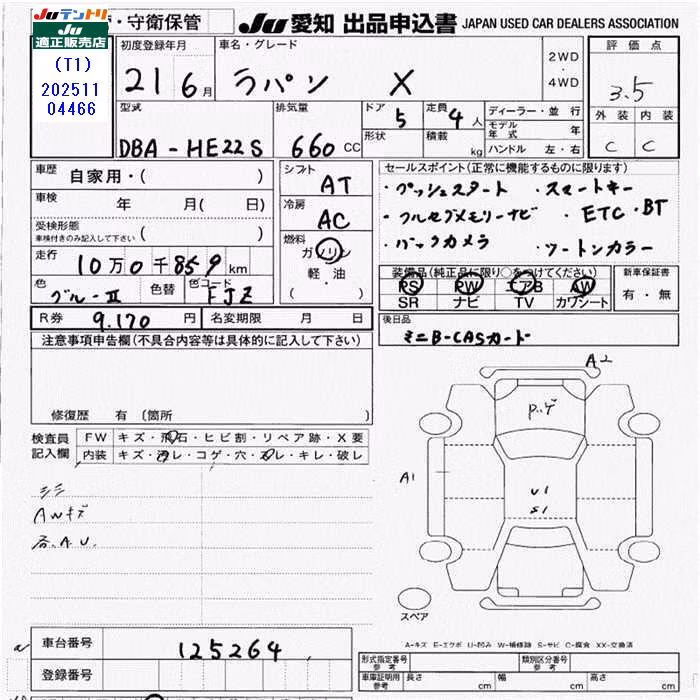 Juテントリ
適正販売店
(T1)
202511
04466
・守衛保管
Ju 愛知 出品申込書 JAPAN USED CAR DEALERS ASSOCIATION
初度登録年月
21 6月
車名・グレード
ラパン X
2WD
・
4WD
評価点
3.5
外装 内装
C C
型式
DBA-HE22S
排気量
660 CC
ドア 5
形状
定員 4人
積載 kg
ディーラー・並行
モデル年式 年
ハンドル 左・右
車歴 自家用・( )
車検 年 月( 日)
受検形態
車検付きのみ記入して下さい ( )
走行 10万0千859km
色 ブルーⅡ 色替 色コード FJZ
シフト AT
冷房 AC
燃料
ガソリン
軽・油
( )
セールスポイント(正常に機能するものに限ります)
・プッシュスタート ・スマートキー
・フルセグメモリーナビ ・ETC・BT
・バックカメラ ・ツートンカラー
装備品(純正品に限り○をつけてください)
PS PW エアB AW
SR ナビ TV カワシート
新車保証書
有・無
R券 9.170円 名変期限 月 日
後日品
ミニB-CASカード
注意事項申告欄(不具合内容等は具体的に記入して下さい)
修復歴 有(箇所 )
検査員
記入欄
FW キズ・飛石・ヒビ割・リペア跡・X要
内装 キズ・汚レ・コゲ・穴・スレ・キレ・破レ
シミ
AWキズ
各.A.U.
A2
P.ゲ
A1
U1
S1
スペア
A-キズ E-エクボ U-凹み W-補修跡 S-サビ C-腐食 XX-交換済
車台番号 125264
登録番号
形式指定番号
参考
類別区分番号
参考
車庫証明用
参考
長さ cm 幅 cm 高さ cm